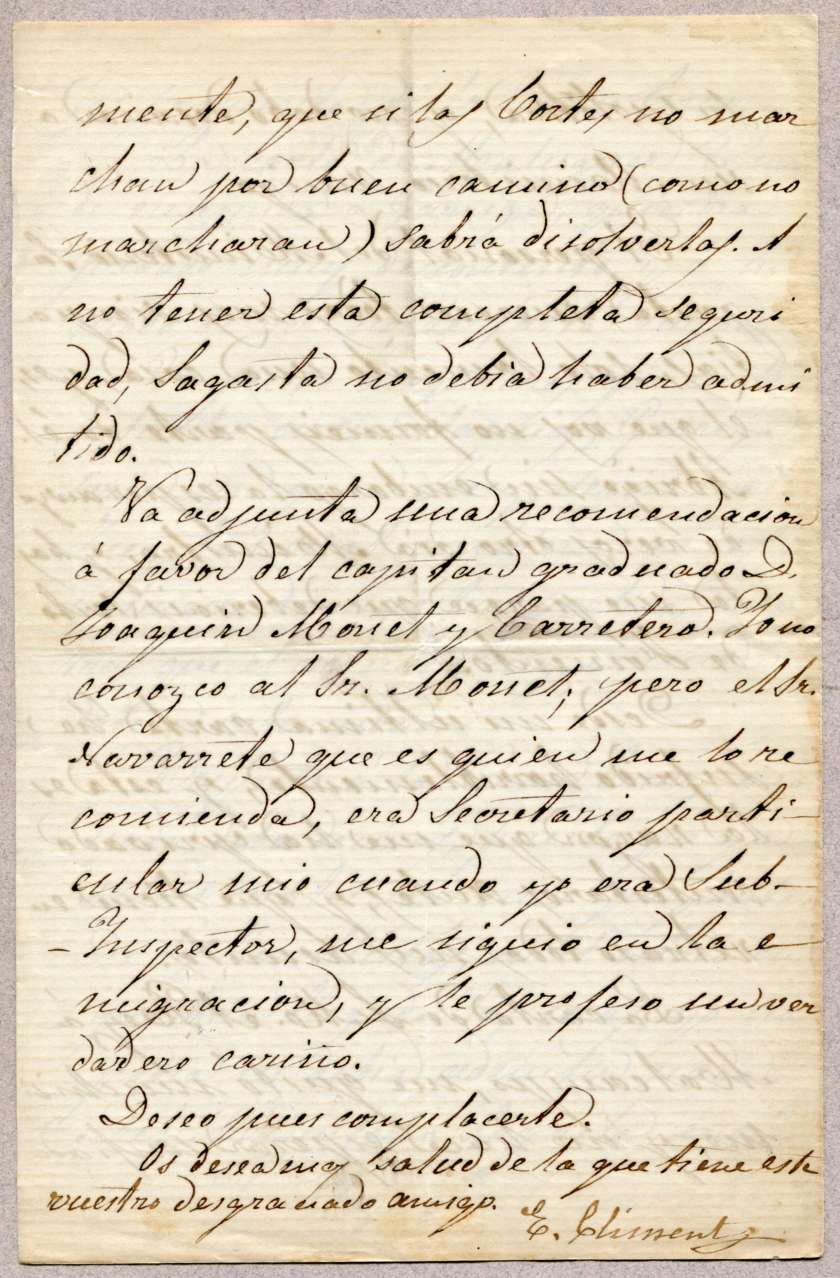 mente, que si las Cortes no mar
chan por buen camino (como no
marcharan) sabrá disolverlas. A
no tener esta completa seguri-
dad, Sagasta no debia haber admi
tido.
Va adjunta una recomendacion
á favor del capitan graduado D.
Joaquin Monet y Carretero. Yo no
conozco al Sr. Monet; pero el Sr.
Navarrete que es quien me lo re
comienda, era Secretario parti-
cular mio cuando yo era Sub-
-Inspector, me siguio en la e-
migracion, y le profeso un ver
dadero cariño.
Deseo pues complacerte.
Os desea mas salud de la que tiene este
vuestro desgraciado amigo.
E. Climent